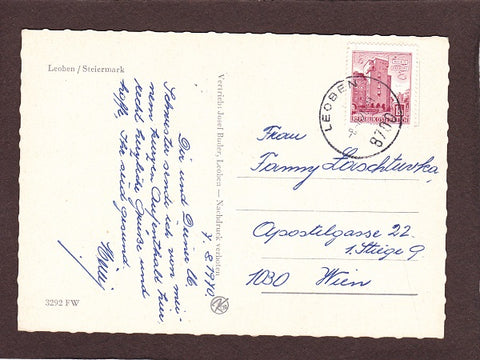 Leoben / Steiermark
7. 8. 1970.
Dir und Deine lb.
Schwester sende ich von mei-
nem kurzen Aufenthalt hier
recht herzliche Grüsse und
hoffe Ihr seid gesund
Vertrieb: Josef Buder, Leoben — Nachdruck verboten
3292 FW
LEOBEN
8700
Frau
Fanny Laschtuvka,
Apostelgasse 22
1. Stiege 9
1030 Wien